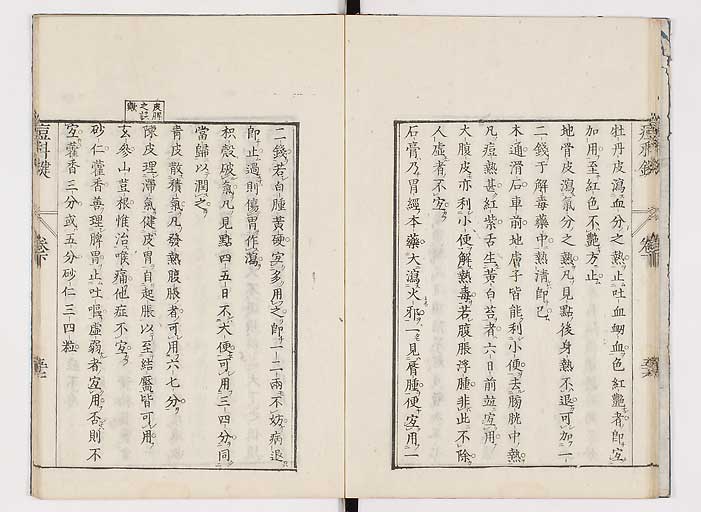 牡丹皮瀉血分之熱止吐血衂血色紅艷者即宜
加用至紅色不艷方止
地骨皮瀉氣分之熱凡見點後身熱不退可加一
二錢于解毒藥中熱清即已
木通滑石車前地膚子皆能利小便去膀胱中熱
凡痘熱甚紅紫舌生黃白苔者六日前並宜用
大腹皮亦利小便解熱毒若腹脹浮腫非此不除
人虛者不宜
石膏乃胃經本藥大瀉火邪一見脣腫便宜用一
二錢若白腫黃硬宜多用之即一二兩不妨病退
即止過則傷胃作瀉
枳殼破氣凡見點四五日不大便可用三四分同
當歸以潤之
青皮散積氣凡發熱腹脹者可用六七分
陳皮理滯氣健皮胃自起脹以至結靨皆可用
皮脾之訛歟
玄參山荳根惟治喉痛他症不宜
砂仁藿香善理脾胃止吐嘔虛弱者宜用否則不
宜藿香三分或五分砂仁三四粒
痘科鍵